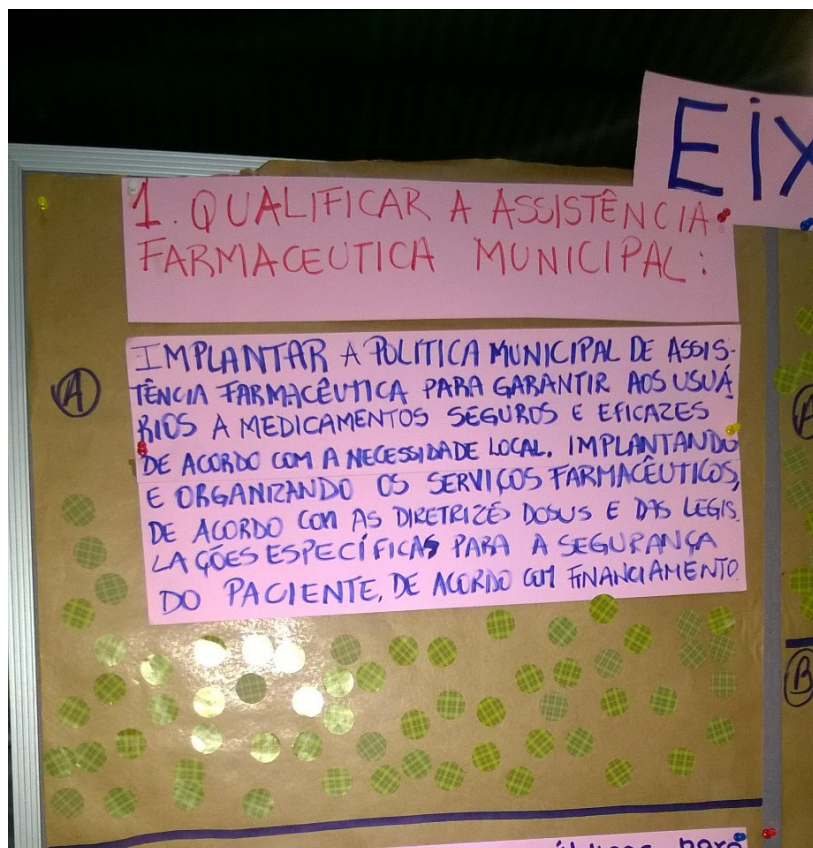 EIX
1. QUALIFICAR A ASSISTÊNCIA
FARMACEUTICA MUNICIPAL:
A
IMPLANTAR A POLITICA MUNICIPAL DE ASSIS-
TÊNCIA FARMACÊUTICA PARA GARANTIR AOS USUÁ
RIOS A MEDICAMENTOS SEGUROS E EFICAZES
DE ACORDO COM A NECESSIDADE LOCAL. IMPLANTANDO
E ORGANIZANDO OS SERVIÇOS FARMACÊUTICOS,
DE ACORDO COM AS DIRETRIZES DO SUS E DAS LEGIS
LAÇÕES ESPECÍFICAS PARA A SEGURANÇA
DO PACIENTE, DE ACORDO COM FINANCIAMENTO.
B
para